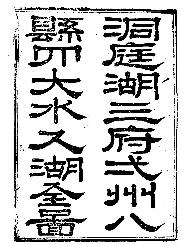 洞庭湖三府弍州八
縣四大水入湖全啚